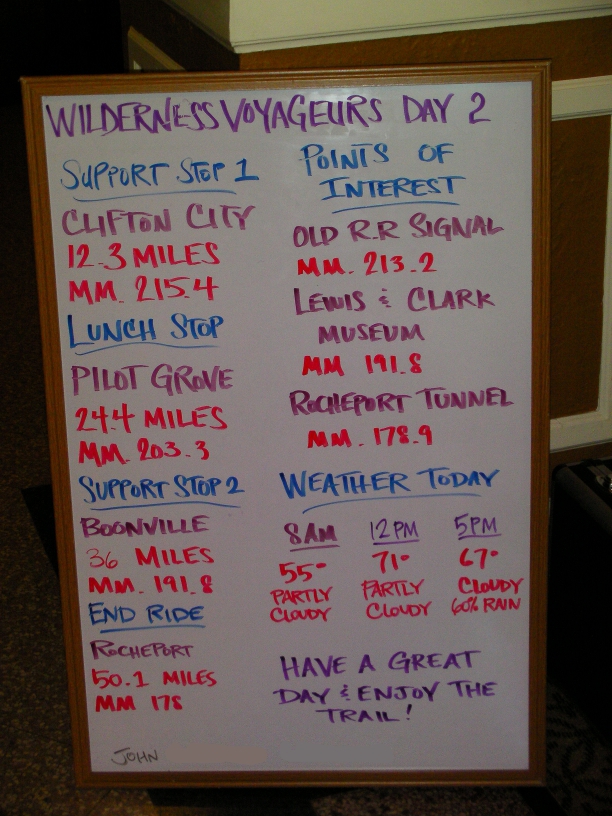 WILDERNESS VOYAGEURS DAY 2
SUPPORT STOP 1
CLIFTON CITY
12.3 MILES
MM. 215.4
LUNCH STOP
PILOT GROVE
24.4 MILES
MM. 203.3
SUPPORT STOP 2
BOONVILLE
36 MILES
MM. 191.8
END RIDE
ROCHEPORT
50.1 MILES
MM 178
JOHN
POINTS OF
INTEREST
OLD R.R SIGNAL
MM. 213.2
LEWIS & CLARK
MUSEUM
MM 191.8
ROCHEPORT TUNNEL
MM. 178.9
WEATHER TODAY
8AM 12PM 5PM
55° 71° 67°
PARTLY PARTLY CLOUDY
CLOUDY CLOUDY 60% RAIN
HAVE A GREAT
DAY & ENJOY THE
TRAIL!